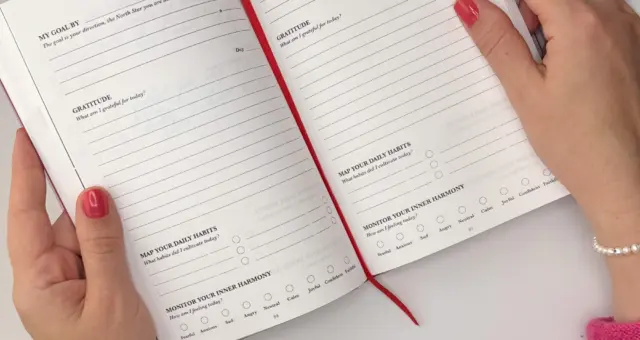 MY GOAL BY
The goal is your direction, the North Star you are
Day
GRATITUDE
What am I grateful for today?
MAP YOUR DAILY HABITS
What habits did I cultivate today?
MONITOR YOUR INNER HARMONY
How am I feeling today?
Fearful Anxious Sad Angry Neutral Calm Joyful Confident
GRATITUDE
What am I grateful for today?
MAP YOUR DAILY HABITS
What habits did I cultivate today?
MONITOR YOUR INNER HARMONY
How am I feeling today?
Fearful Anxious Sad Angry Neutral Calm Joyful Confident